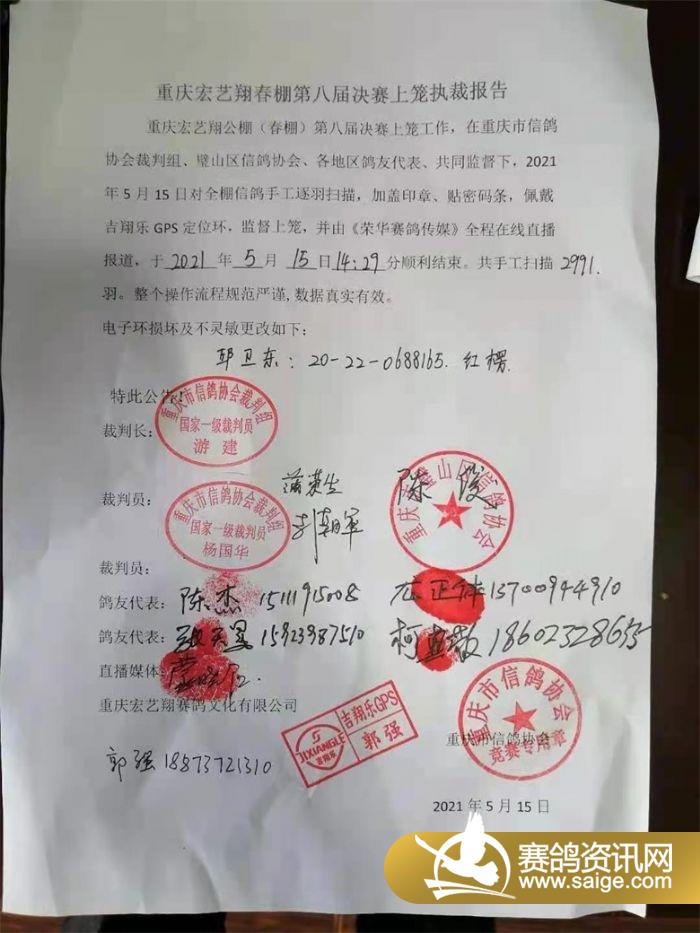 重庆宏艺翔春棚第八届决赛上笼执裁报告
重庆宏艺翔公棚（春棚）第八届决赛上笼工作，在重庆市信鸽
协会裁判组、璧山区信鸽协会、各地区鸽友代表、共同监督下，2021
年5月15日对全棚信鸽手工逐羽扫描，加盖印章、贴密码条，佩戴
吉翔乐GPS定位环，监督上笼，并由《荣华赛鸽传媒》全程在线直播
报道，于2021年5月15日14:29分顺利结束。共手工扫描2991.
羽。整个操作流程规范严谨,数据真实有效。
电子环损坏及不灵敏更改如下：
邱卫东：20-22-0688165.红楞
特此公告！
重庆市信鸽协会裁判组
国家一级裁判员
游建
裁判长：
裁判员：
重庆市信鸽协会裁判组
国家一级裁判员
杨国华
陈俊
重庆市璧山区信鸽协会
裁判员：
鸽友代表：陈杰 15111915008
13700944910
鸽友代表：15923987510
18602328655
直播媒体
重庆宏艺翔赛鸽文化有限公司
JIXIANGLE
吉翔乐
吉翔乐GPS
郭强
重庆市信鸽协会
重庆市信鸽协会
竞赛专用章
郭强18873721310
2021年5月15日
赛鸽资讯网
www.saige.com